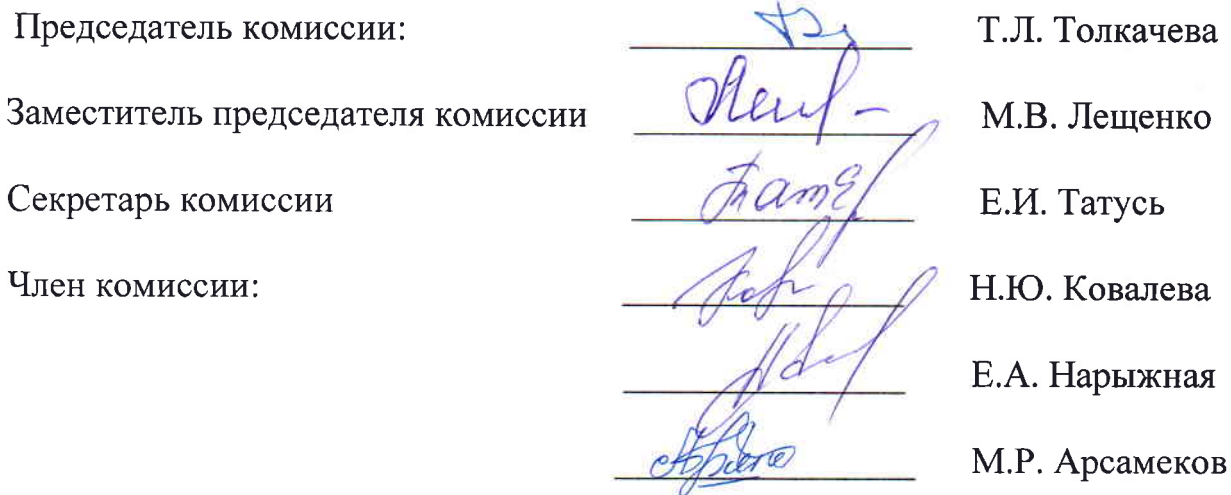 Председатель комиссии: Т.Л. Толкачева
Заместитель председателя комиссии М.В. Лещенко
Секретарь комиссии Е.И. Татусь
Член комиссии: Н.Ю. Ковалева
Е.А. Нарыжная
М.Р. Арсамеков